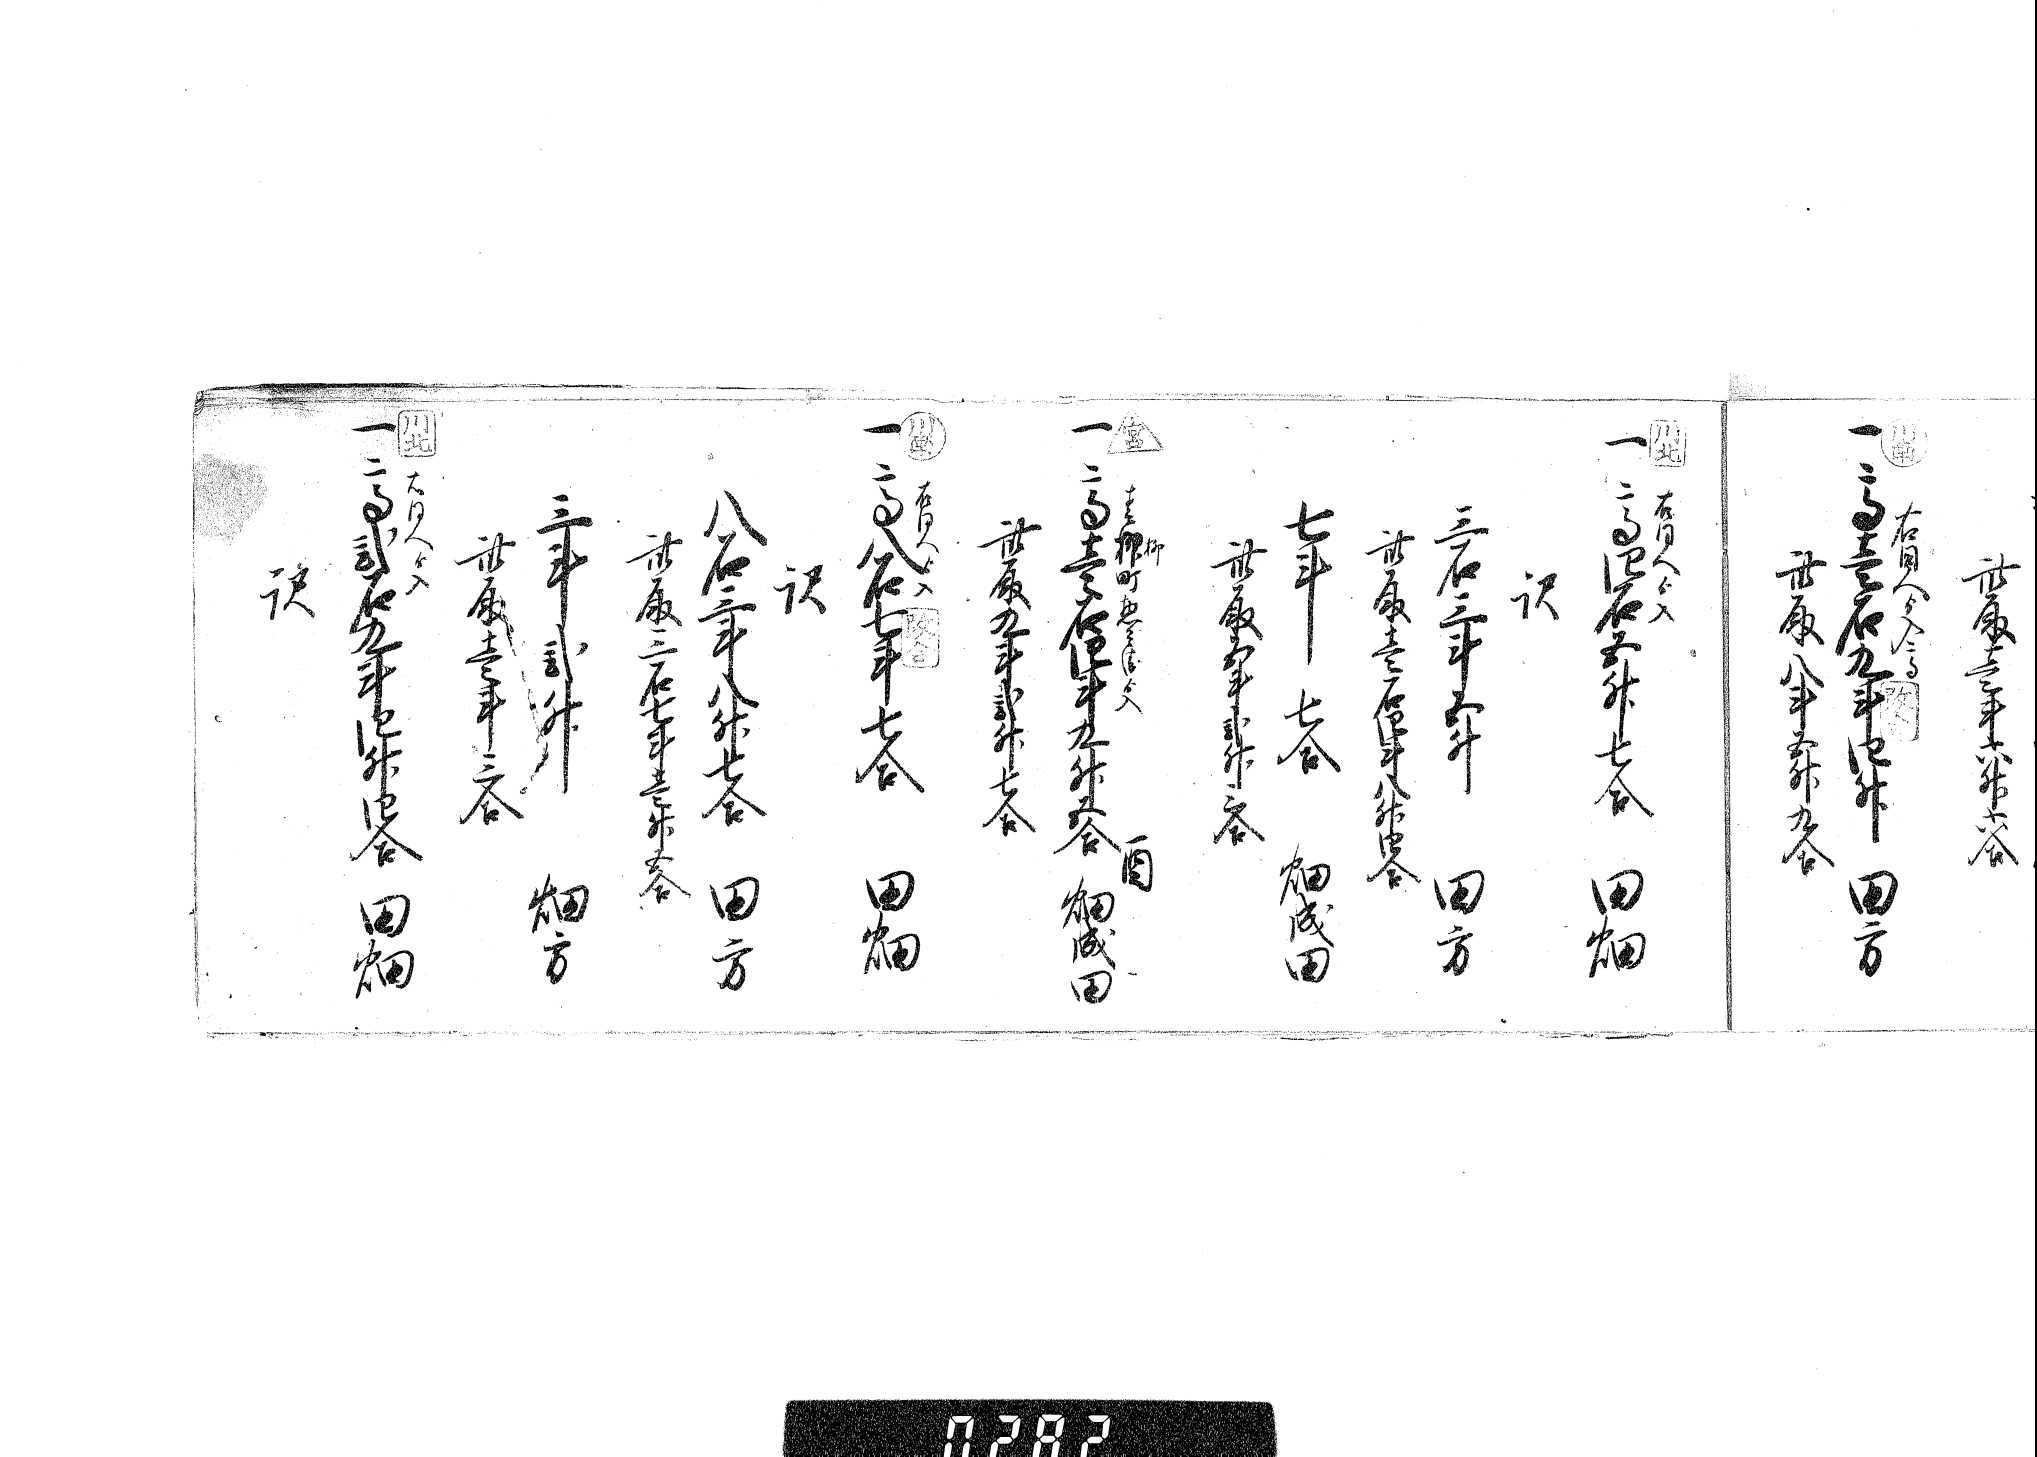 此取壱斗六升六合
川南
右同人ゟ入
一 高壱石九斗四升 田方
改
此取八斗五升九合
川北
右同人ゟ入
一 高四石五升七合 田畑
訳
三石三斗五升 田方
此取壱石四斗八升四合
七斗七合 畑成田
此取五斗弐升三合
宮
柳
一 高壱石四斗九升五合 畑成田
此取九斗弐升七合
川南
右同人ゟ入
一 高八石七斗七合 田畑
改
訳
八石三斗八升七合 田方
此取三石七斗壱升五合
三斗弐升 畑方
此取壱斗三合
川北
右同人ゟ入
一 高弐石九斗四升四合 田畑
訳
0282